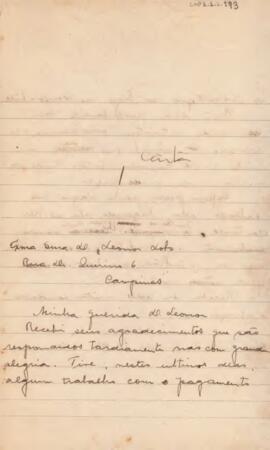 Carta
Exma Snra. D. Leonor Lobo
Rua Dr. Quirino 6
Campinas
Minha querida D. Leonor
Recebi seus agradecimentos que são
respondidos tardiamente mas com grande
alegria. Tive, nestes ultimos dias,
algum trabalho com o pagamento